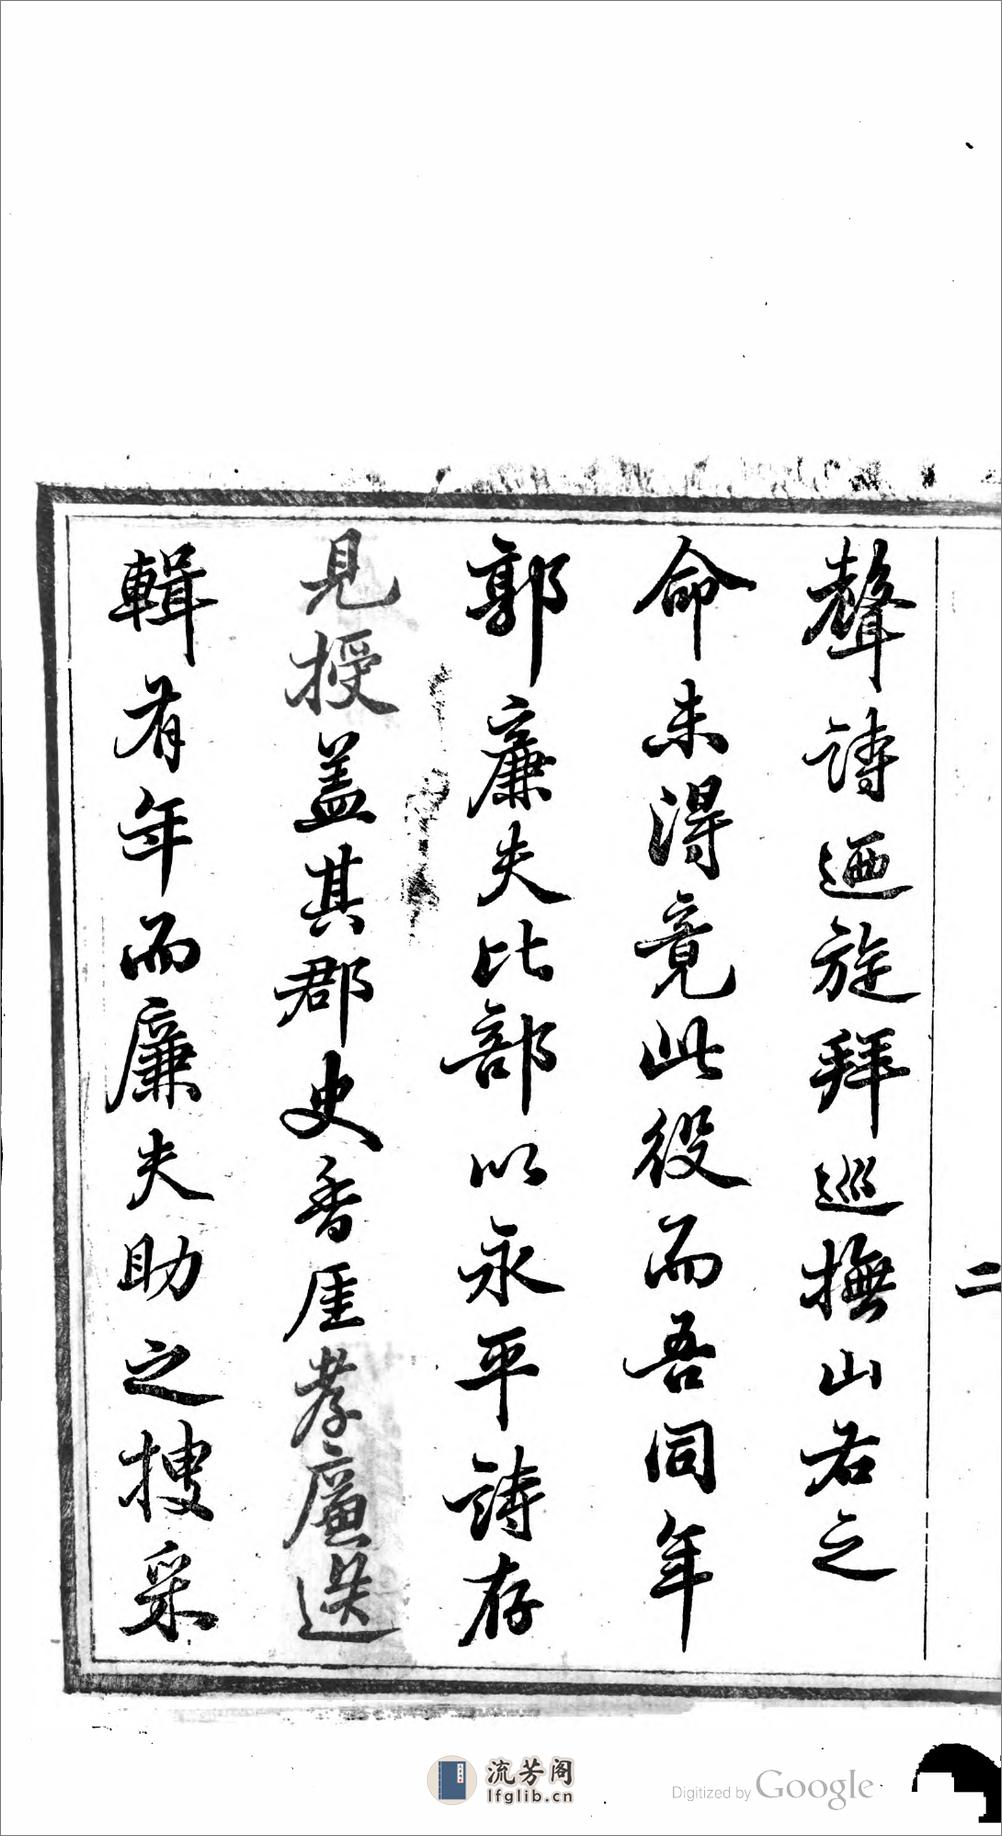 聲詩迺旋拜巡撫山右之
命未得竟此役而吾同年
郭廉夫比部以永平詩存
見授蓋其郡史香厓孝廉選
輯有年而廉夫助之搜采
二
流芳阁
lfglib.cn
Digitized by Google